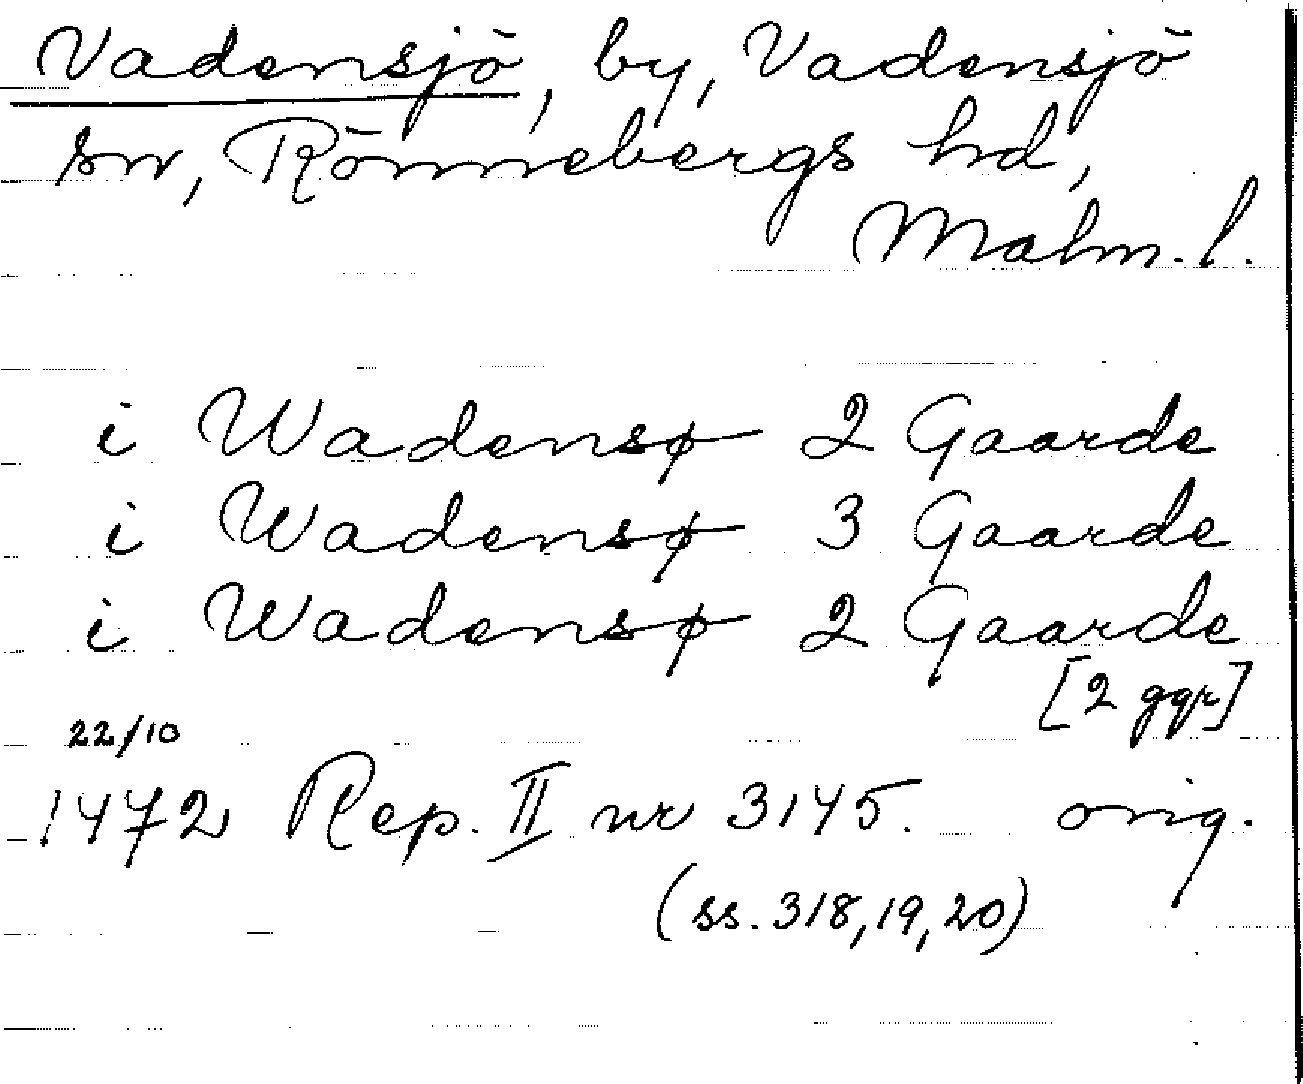 Vadensjö, by, Vadensjö
sn, Rönnebergs hd,
Malm. l.
i Wadensø 2 Gaarde
i Wadensø 3 Gaarde
i Wadensø 2 Gaarde
[2 ggr]
22/10
1472 Rep. II nr 3145. orig.
(ss. 318, 19, 20)